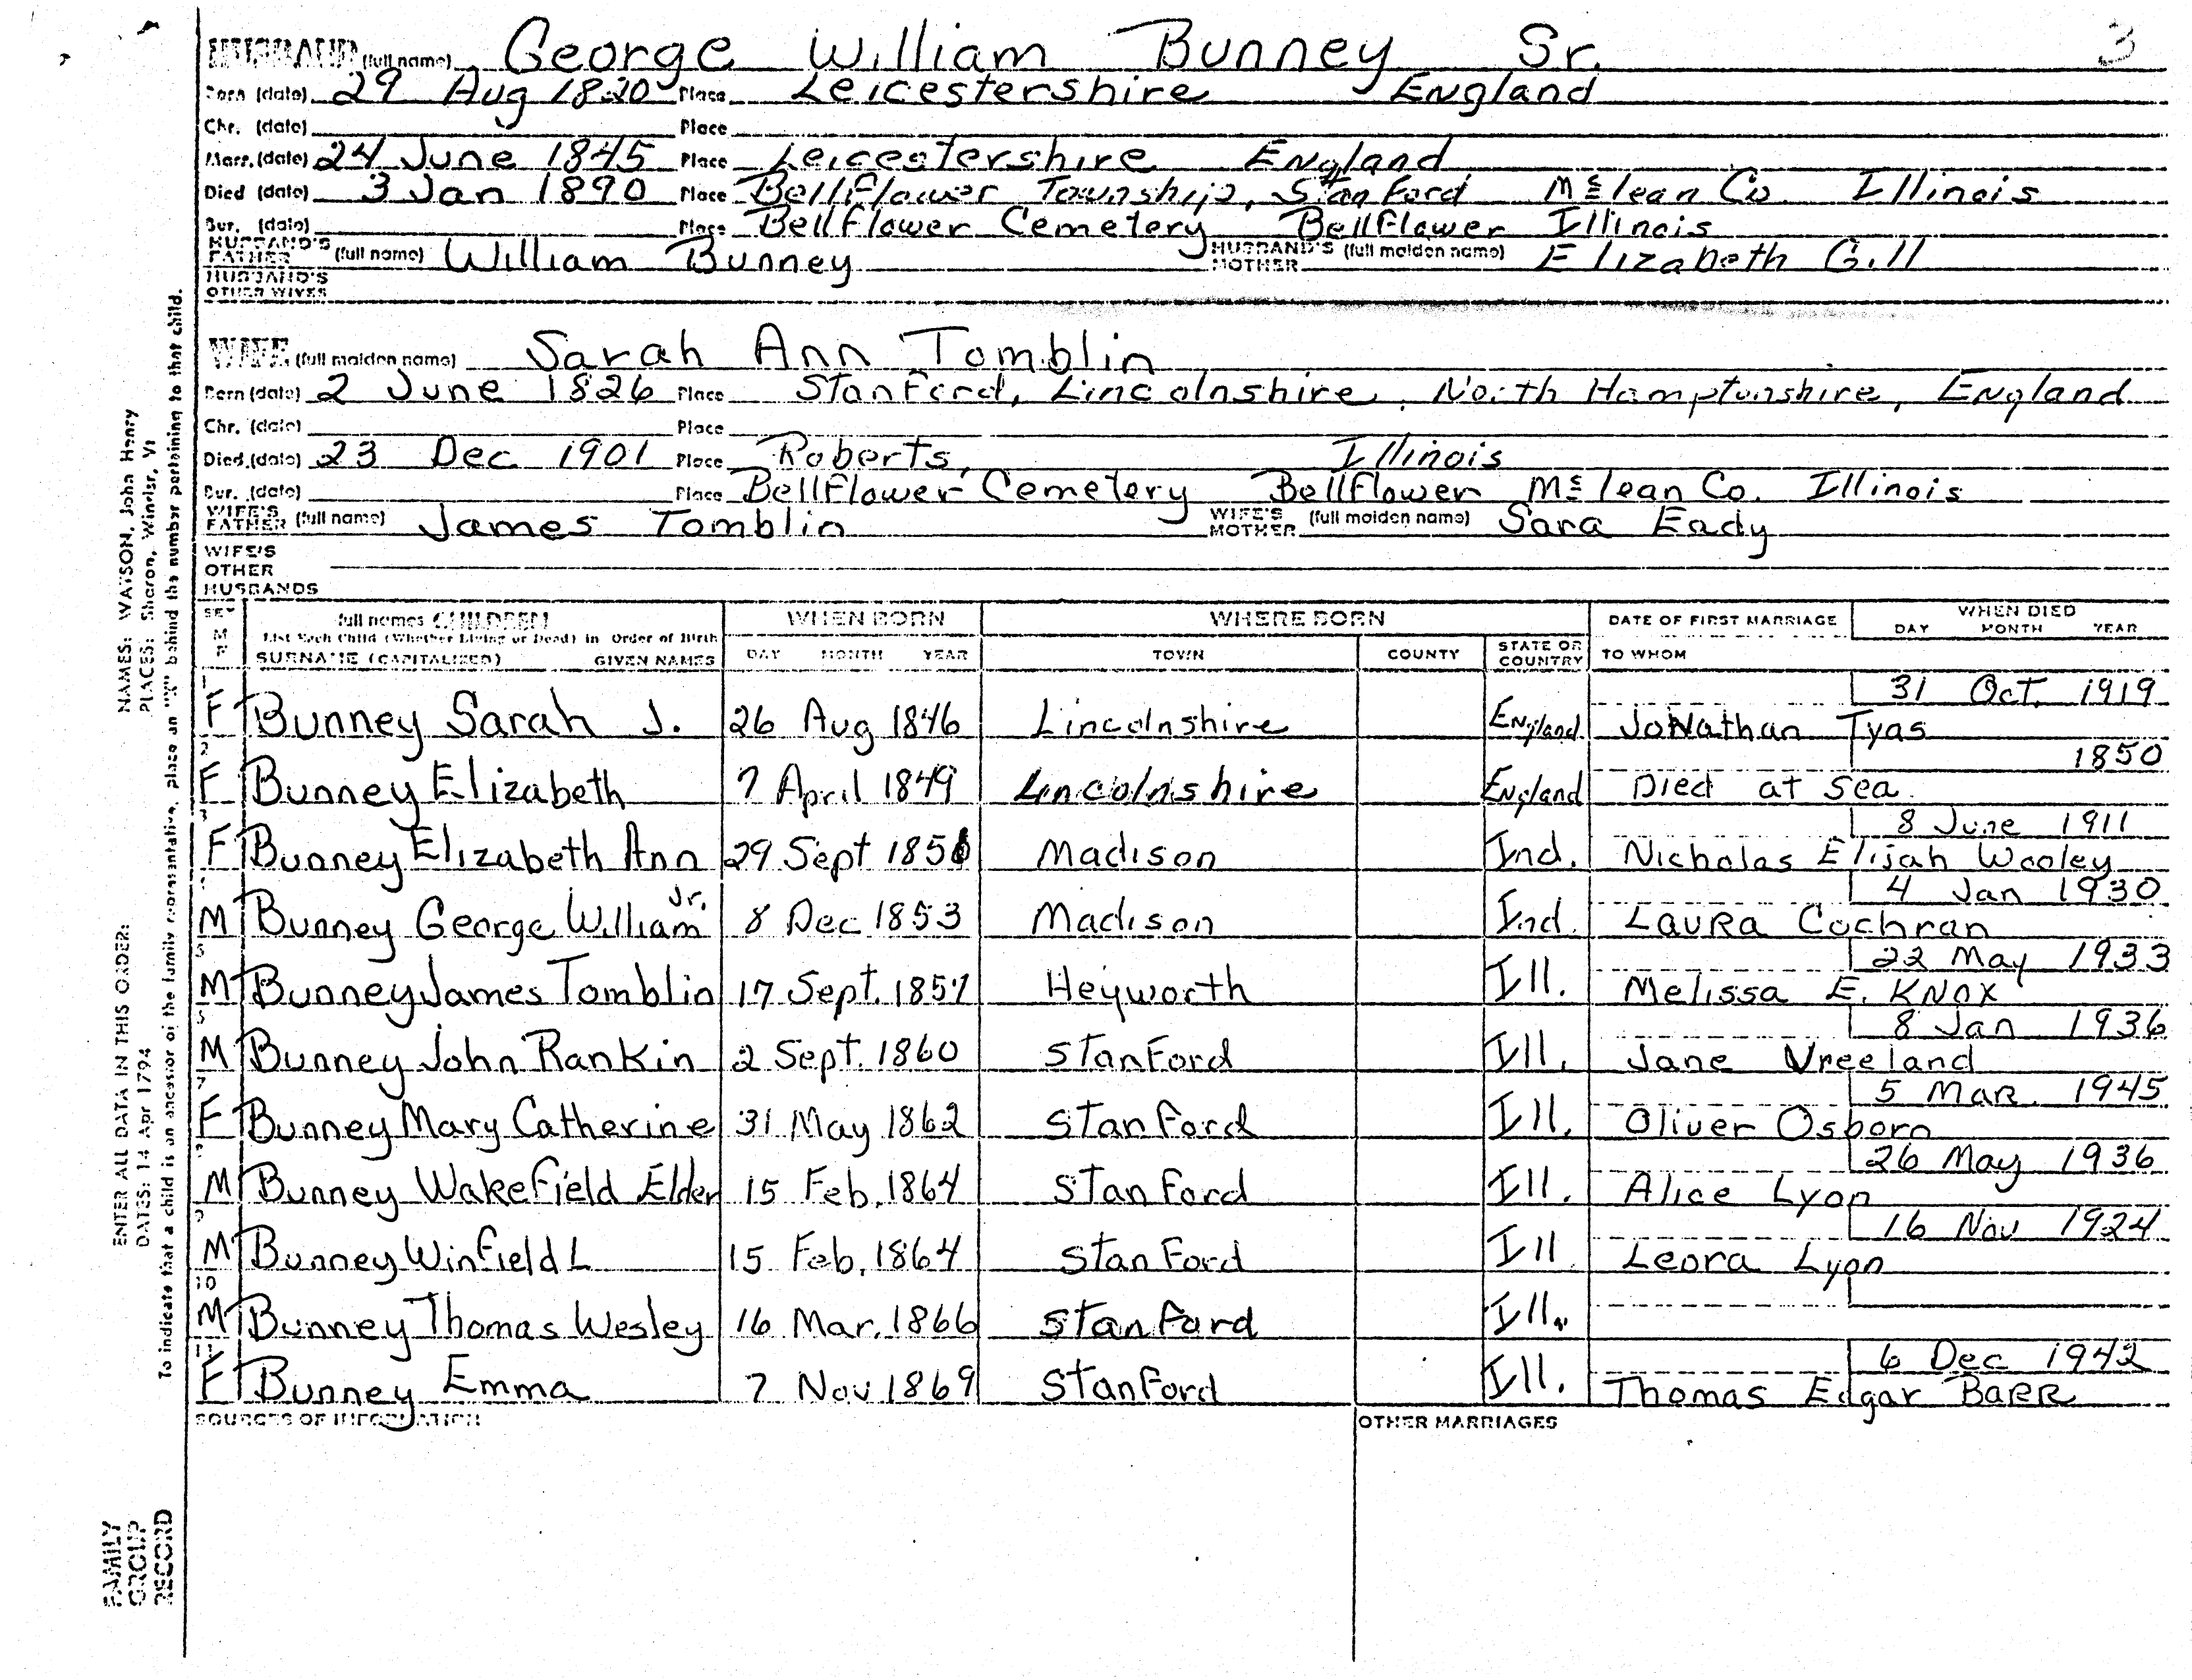 3
HUSBAND (full name) George William Bunney Sr.
Born (date) 29 Aug 1820 Place Leicestershire England
Chr. (date) Place
Marr. (date) 24 June 1845 Place Leicestershire England
Died (date) 3 Jan 1890 Place BellFlower Township, Stanford McLean Co. Illinois
Bur. (date) Place BellFlower Cemetery BellFlower Illinois
HUSBAND'S FATHER (full name) William Bunney HUSBAND'S MOTHER (full maiden name) Elizabeth Gill
HUSBAND'S OTHER WIVES
WIFE (full maiden name) Sarah Ann Tomblin
Born (date) 2 June 1826 Place Stanford, Lincolnshire, North Hamptonshire, England
Chr. (date) Place
Died (date) 23 Dec 1901 Place Roberts, Illinois
Bur. (date) Place BellFlower Cemetery BellFlower McLean Co. Illinois
WIFE'S FATHER (full name) James Tomblin WIFE'S MOTHER (full maiden name) Sara Eady
WIFE'S OTHER HUSBANDS
SEX M F full names CHILDREN WHEN BORN WHERE BORN DATE OF FIRST MARRIAGE WHEN DIED
List Each Child (Whether Living or Dead) in Order of Birth DAY MONTH YEAR
SURNAME (CAPITALIZED) GIVEN NAMES DAY MONTH YEAR TOWN COUNTY STATE OR COUNTRY TO WHOM
1 31 Oct. 1919
F Bunney Sarah J. 26 Aug 1846 Lincolnshire England JoNathan Tyas
2 1850
F Bunney Elizabeth 7 April 1849 Lincolnshire England Died at Sea
3 8 June 1911
F Bunney Elizabeth Ann 29 Sept Madison Ind. Nicholas Elijah Wooley
4 4 Jan 1930
M Bunney George William Jr. 8 Dec 1853 Madison Ind. LauRa Cochran
5 22 May 1933
M Bunney James Tomblin 17 Sept. 1857 Heyworth Ill. Melissa E. KNOX
8 Jan 1936
M Bunney John Rankin 2 Sept. 1860 Stanford Ill. Jane Vreeland
7 5 MaR. 1945
F Bunney Mary Catherine 31 May 1862 Stanford Ill. Oliver Osborn
26 May 1936
M Bunney Wakefield Elder 15 Feb. 1864 Stanford Ill. Alice Lyon
9 16 Nov 1924
M Bunney Winfield L 15 Feb. 1864 Stanford Ill Leora Lyon
10
M Bunney Thomas Wesley 16 Mar. 1866 Stanford Ill.
11 6 Dec 1942
F Bunney Emma 7 Nov 1869 Stanford Ill. Thomas Edgar BaRR
SOURCES OF INFORMATION OTHER MARRIAGES
FAMILY GROUP RECORD
ENTER ALL DATA IN THIS ORDER:
NAMES: WATSON, John Henry
DATES: 14 Apr 1794
PLACES: Sharon, Windsr, Vt
To indicate that a child is an ancestor of the family representative, place an "X" behind the number pertaining to that child.